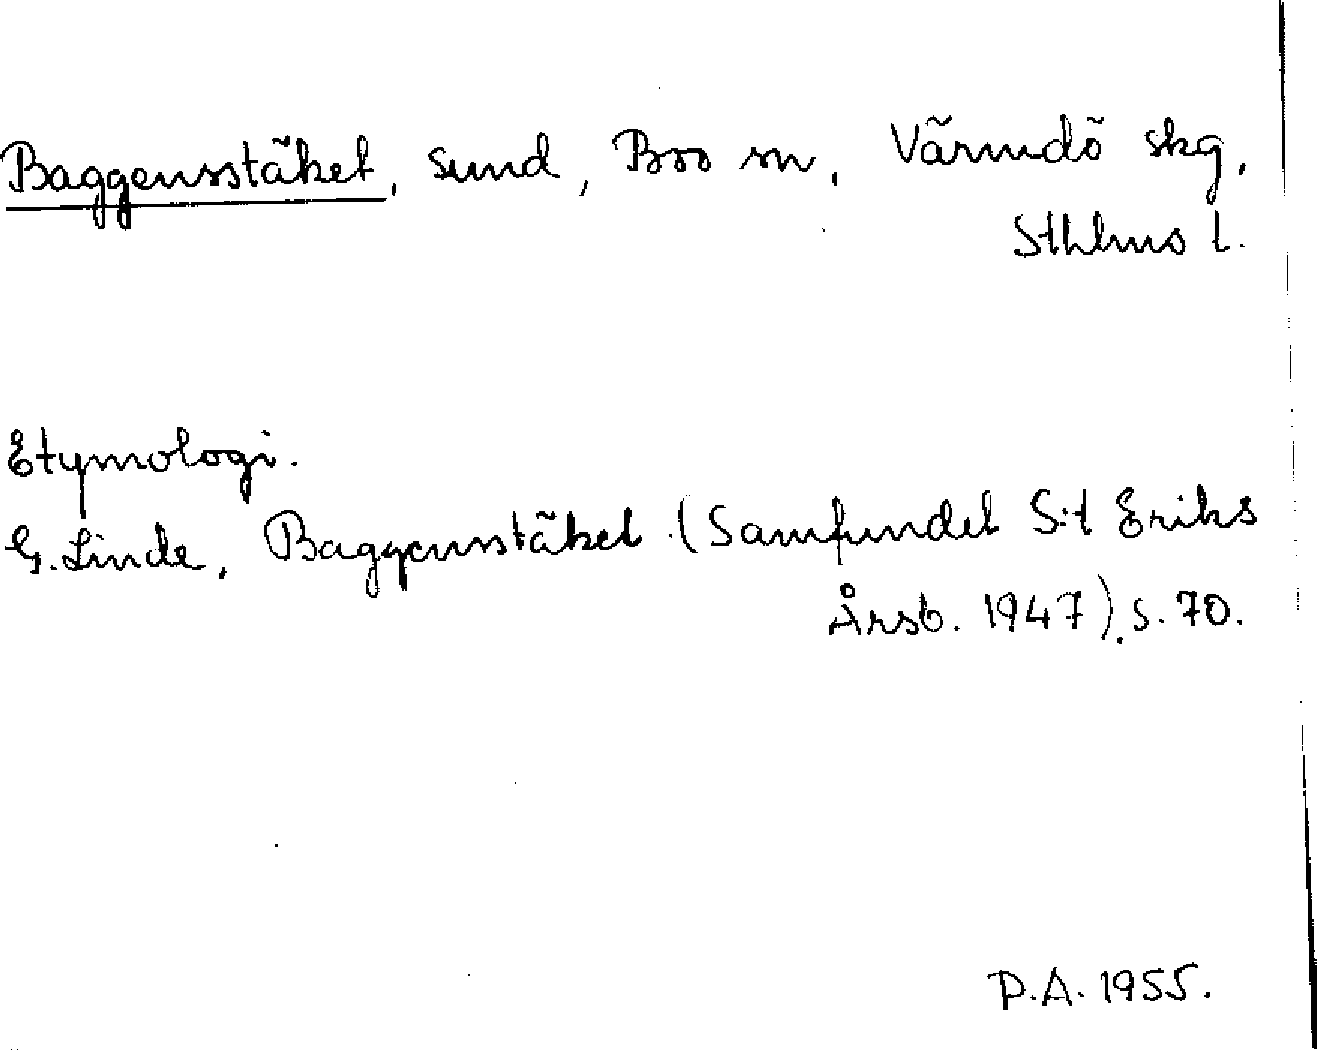 Baggensstäket, sund, Boo sn, Värmdö skg,
Sthlms l.
Etymologi.
G. Linde, Baggensstäket (Samfundet S:t Eriks
Årsb. 1947), s. 70.
P.A. 1955.